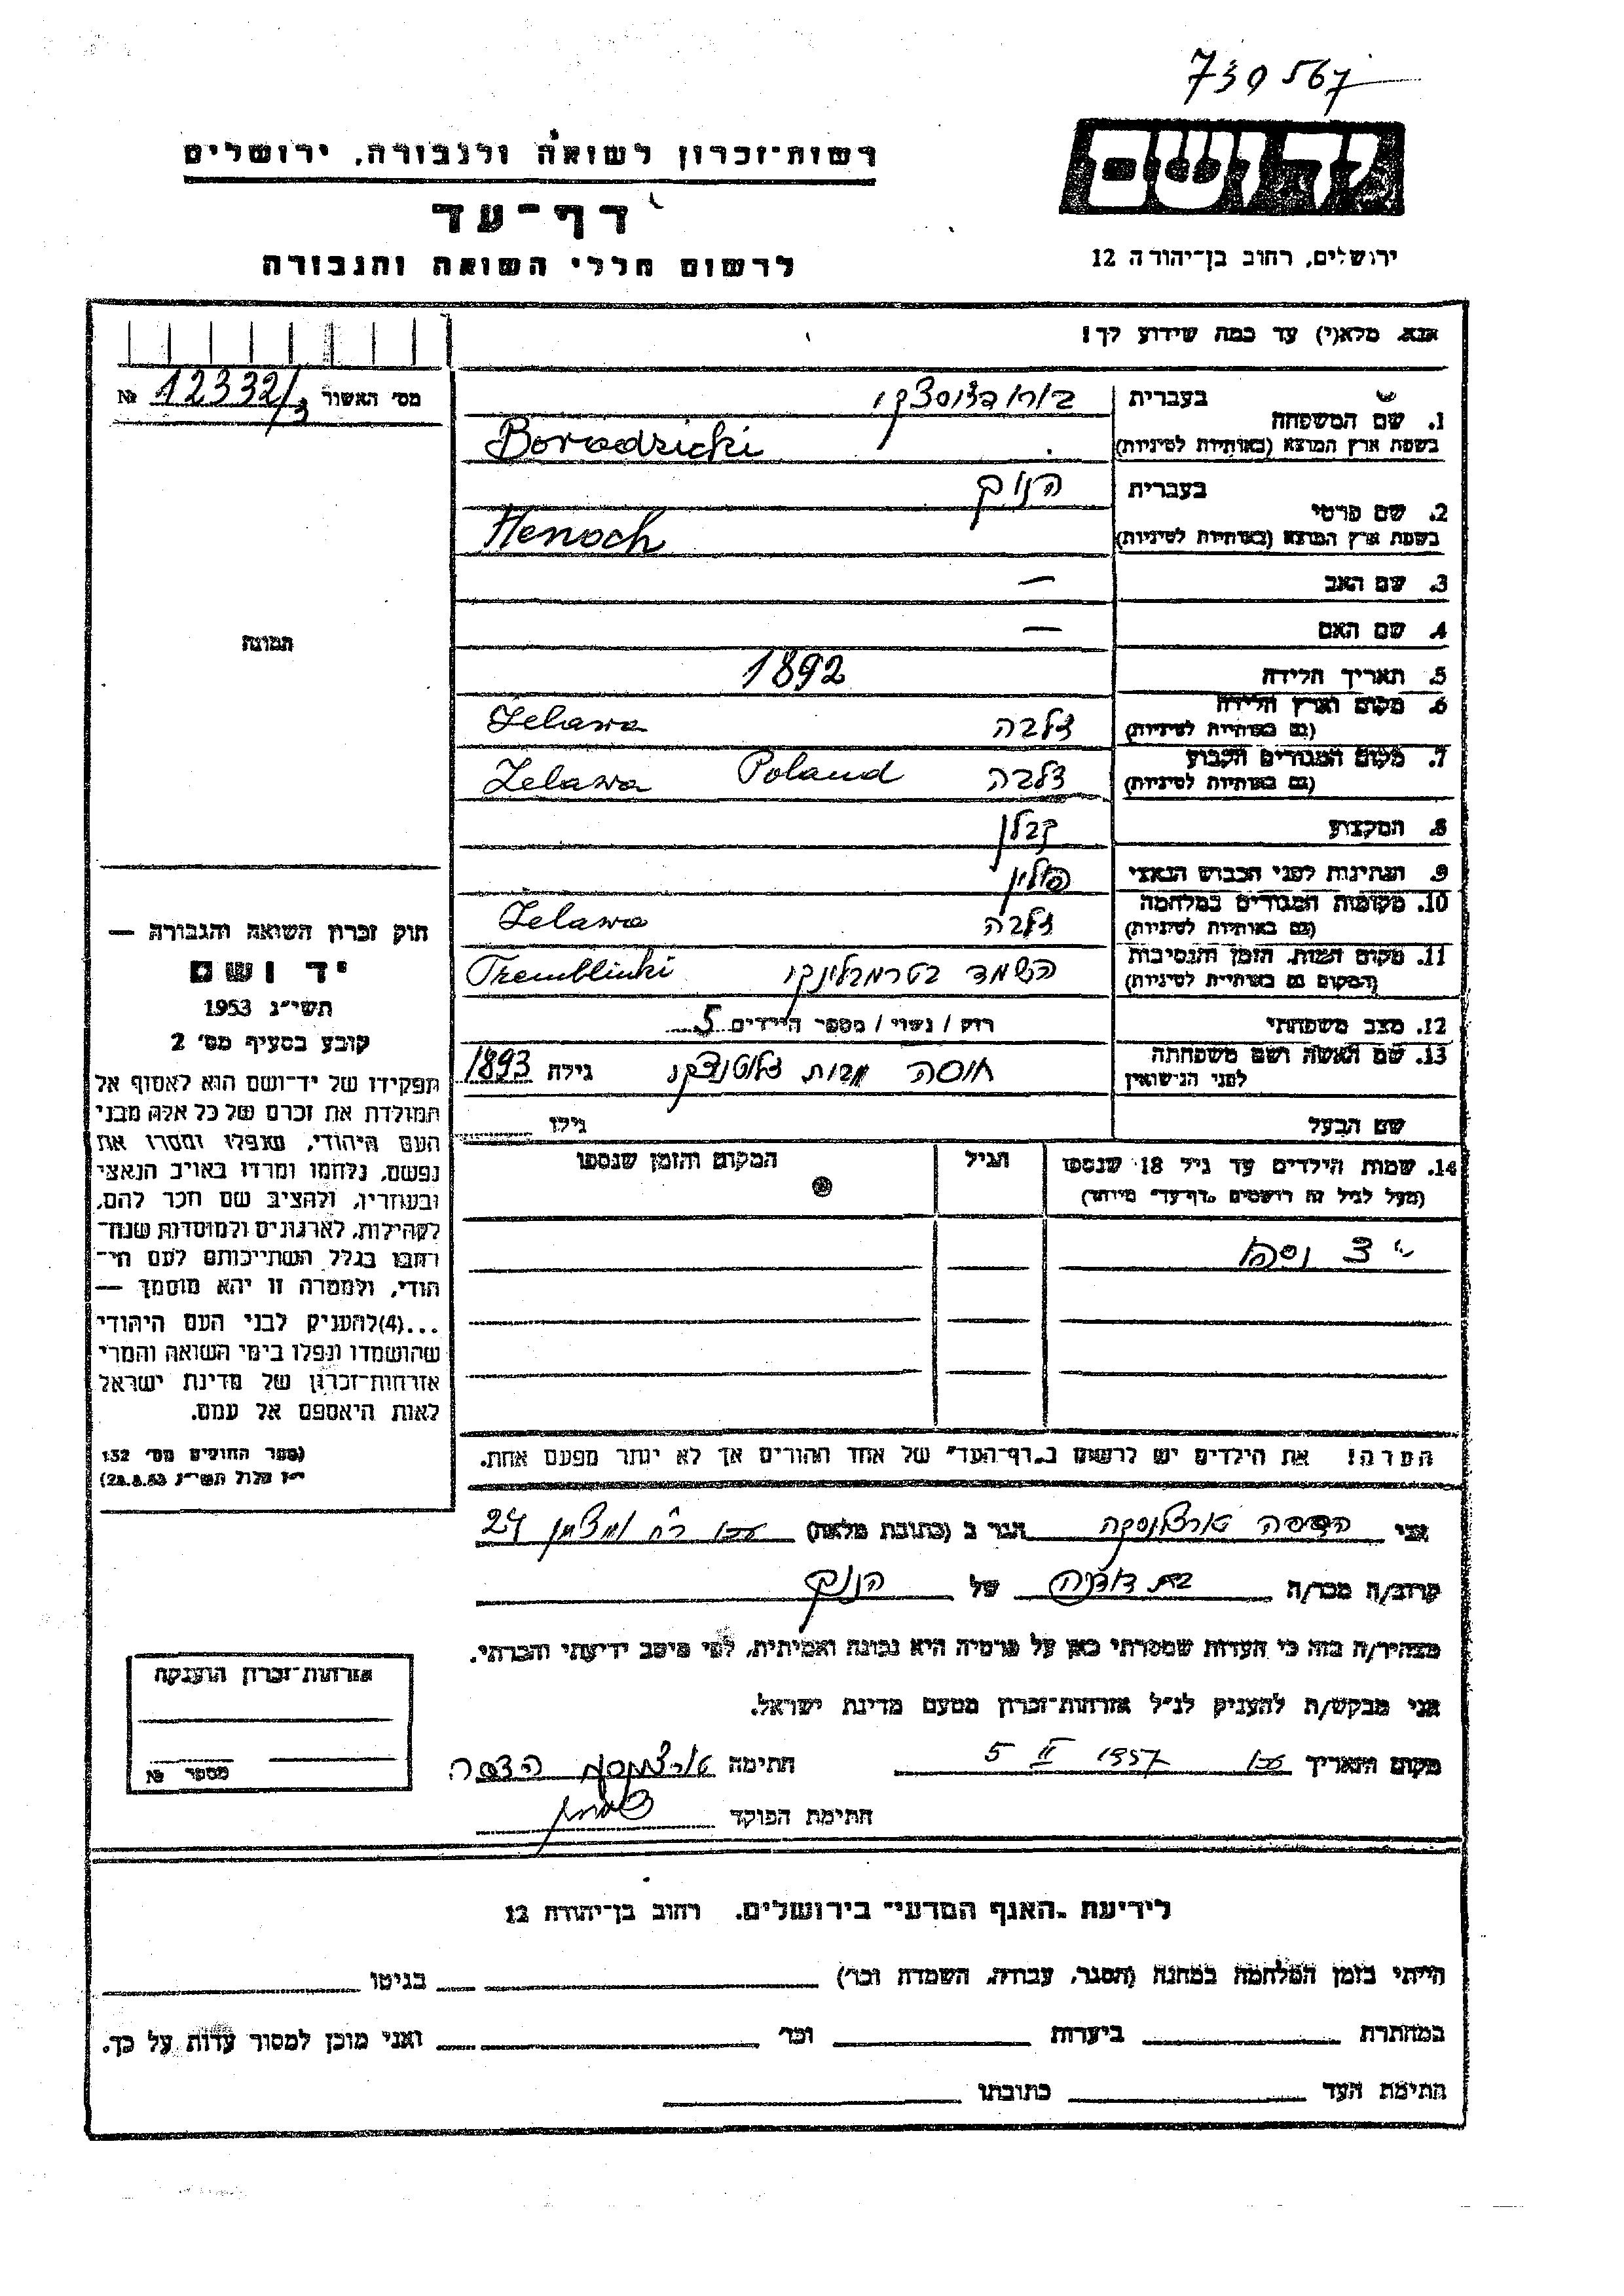 730567
רשות־זכרון לשואה ולגבורה, ירושלים
ידושם
דף־עד
ירושלים, רחוב בן־יהודה 12
לרשום חללי השואה והגבורה
אנא, מלא(י) עד כמה שידוע לך!
מס׳ האשור 12332/3 №
1. שם המשפחה
בעברית
בשפת ארץ המוצא (באותיות לטיניות) Borodzicki
2. שם פרטי
בעברית הנוך
בשפת ארץ המוצא (באותיות לטיניות) Henoch
3. שם האב —
4. שם האם —
תמונה
5. תאריך הלידה 1892
6. מקום וארץ הלידה (גם באותיות לטיניות) זלבה Zelawa
7. מקום המגורים הקבוע (גם באותיות לטיניות) זלבה Poland Zelawa
8. המקצוע קבלן
9. הנתינות לפני הכבוש הנאצי פולין
10. מקומות המגורים במלחמה (גם באותיות לטיניות) זלבה Zelawa
11. מקום המות, הזמן והנסיבות (המקום גם באותיות לטיניות) הושמד בטרמבלינקי Tremblinki
12. מצב משפחתי רווק / נשוי / מספר הילדים 5
13. שם האשה ושם משפחתה לפני הנישואין חוסה מבית גילה 1893
שם הבעל גילו
14. שמות הילדים עד גיל 18 שנספו (מעל לגיל זה רושמים „דף־עד״ מיוחד)
הגיל
המקום והזמן שנספו
חוק זכרון השואה והגבורה —
יד ושם
תשי״ג 1953
קובע בסעיף מס׳ 2
תפקידו של יד־ושם הוא לאסוף אל
המולדת את זכרם של כל אלה מבני
העם היהודי, שנפלו ומסרו את
נפשם, נלחמו ומרדו באויב הנאצי
ובעוזריו, ולהציב שם וזכר להם,
לקהילות, לארגונים ולמוסדות שנח־
רבו בגלל השתייכותם לעם הי־
הודי, ולמטרה זו יהא מוסמך —
...(4) להעניק לבני העם היהודי
שהושמדו ונפלו בימי השואה והמרי
אזרחות־זכרון של מדינת ישראל
לאות היאספם אל עמם.
(ספר החוקים מס׳ 132
י״ז אלול תשי״ג 28.8.53)
הערה! את הילדים יש לרשום ב„דף־העד״ של אחד ההורים אך לא יותר מפעם אחת.
אני הדסה הגר ב (כתובת מלאה) עכו 24
קרוב/ה מכר/ה בת דודה של הנוך
מצהיר/ה בזה כי העדות שמסרתי כאן על פרטיה היא נכונה ואמיתית, לפי מיטב ידיעתי והכרתי.
אני מבקש/ת להעניק לנ״ל אזרחות־זכרון מטעם מדינת ישראל.
מקום ותאריך עכו 5 II 1957 חתימה הדסה
חתימת הפוקד
אזרחות־זכרון הוענקה
מספר №
לידיעת „האגף המדעי״ בירושלים, רחוב בן־יהודה 12
הייתי בזמן המלחמה במחנה (הסגר, עבודה, השמדה וכו׳) בגיטו
במחתרת ביערות וכו׳ ואני מוכן למסור עדות על כך.
חתימת העד כתובתו